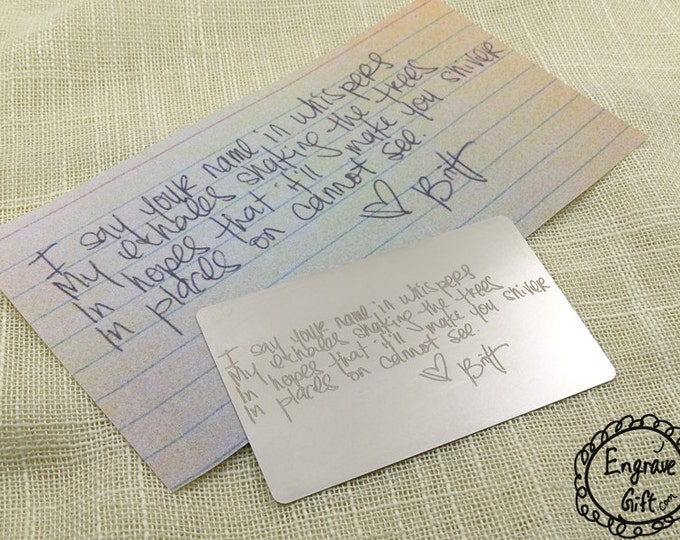 I say your name in whispers
My exhales shaking the trees
In hopes that it'll make you shiver
In places on cannot see.
♡ Britt
I say your name in whispers
My exhales shaking the trees
In hopes that it'll make you shiver
In places on cannot see.
♡ Britt
Engrave
Gift.com